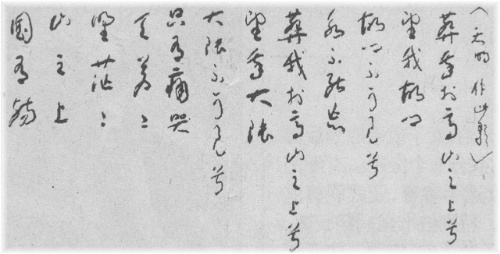 （天明作此歌）
葬我於高山之上兮
望我故鄉
故鄉不可見兮
永不能忘
葬我於高山之上兮
望我大陸
大陸不可見兮
只有痛哭
天蒼〻
野茫〻
山之上
國有殤